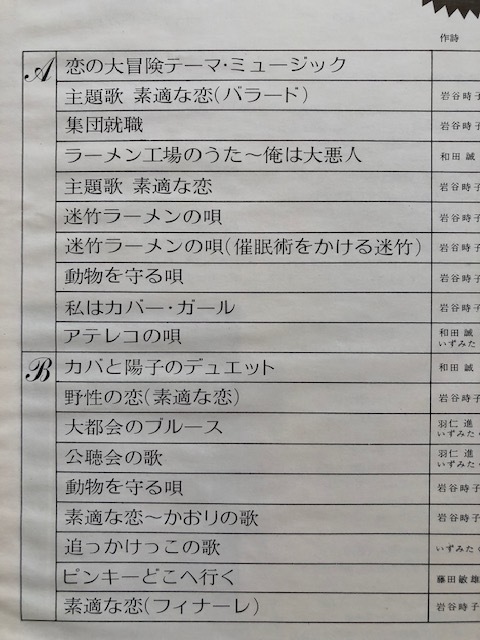 作詩
A 恋の大冒険テーマ・ミュージック
主題歌 素適な恋(バラード) 岩谷時子
集団就職 岩谷時子
ラーメン工場のうた〜俺は大悪人 和田 誠
主題歌 素適な恋 岩谷時子
迷竹ラーメンの唄 岩谷時子
迷竹ラーメンの唄(催眠術をかける迷竹) 岩谷時子
動物を守る唄 岩谷時子
私はカバー・ガール 岩谷時子
アテレコの唄 和田 誠
いずみた
B カバと陽子のデュエット 和田 誠
野性の恋(素適な恋) 岩谷時子
大都会のブルース 羽仁 進
いずみたく
公聴会の歌 羽仁 進
いずみたく
動物を守る唄 岩谷時子
素適な恋〜かおりの歌 岩谷時子
追っかけっこの歌 いずみたく
ピンキーどこへ行く 藤田敏雄
素適な恋(フィナーレ) 岩谷時子